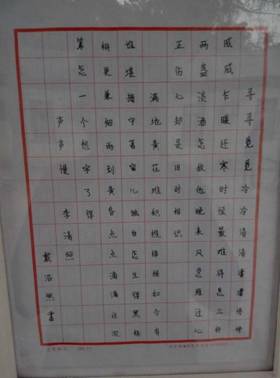 寻寻觅觅冷冷清清凄凄惨惨
戚戚乍暖还寒时候最难将息三杯
两盏淡酒怎敌他晚来风急雁过
正伤心却是旧时相识
满地黄花堆积憔悴损如今有
谁堪摘守着窗儿独自怎生得黑梧
桐更兼细雨到黄昏点点滴滴这次
第怎一个愁字了得
声声慢 李清照